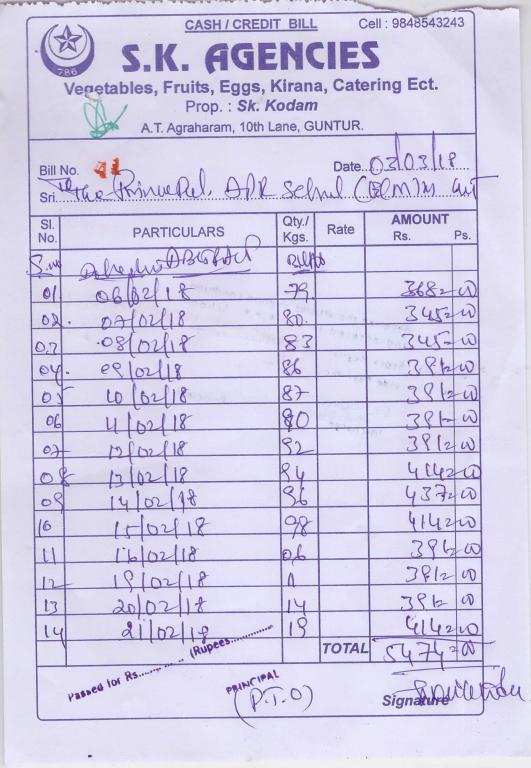 CASH / CREDIT BILL Cell : 9848543243
786
S.K. AGENCIES
Vegetables, Fruits, Eggs, Kirana, Catering Ect.
Prop. : Sk. Kodam
A.T. Agraharam, 10th Lane, GUNTUR.
Bill No. 41 Date 03/03/18
Sri The Principal,
Sl. No. PARTICULARS Qty./ Kgs. Rate AMOUNT Rs. Ps.
S.no
01 06/02/18 79 368=00
02. 07/02/18 80. 345=00
03 08/02/18 83 345=00
04. 09/02/18 86 391=00
05 10/02/18 87 391=00
06 11/02/18 90 391=00
07 12/02/18 92 391=00
08 13/02/18 94 414=00
09 14/02/18 96 437=00
10 15/02/18 98 414=00
11 16/02/18 06 391=00
12 19/02/18 391=00
13 20/02/18 14 391=00
14 21/02/18 19 414=00
TOTAL 5474=00
Passed for Rs............ (Rupees..............
PRINCIPAL
(P.T.O)
Signature